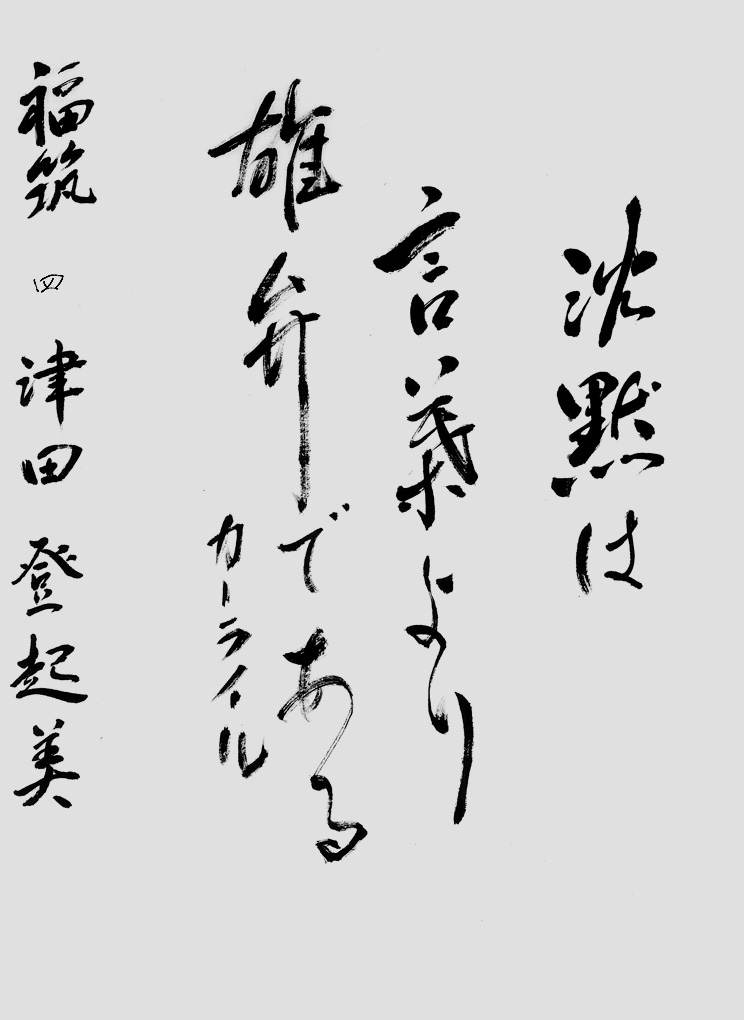 沈黙は
言葉より
雄弁である
カーライル
福筑 四 津田 登起美